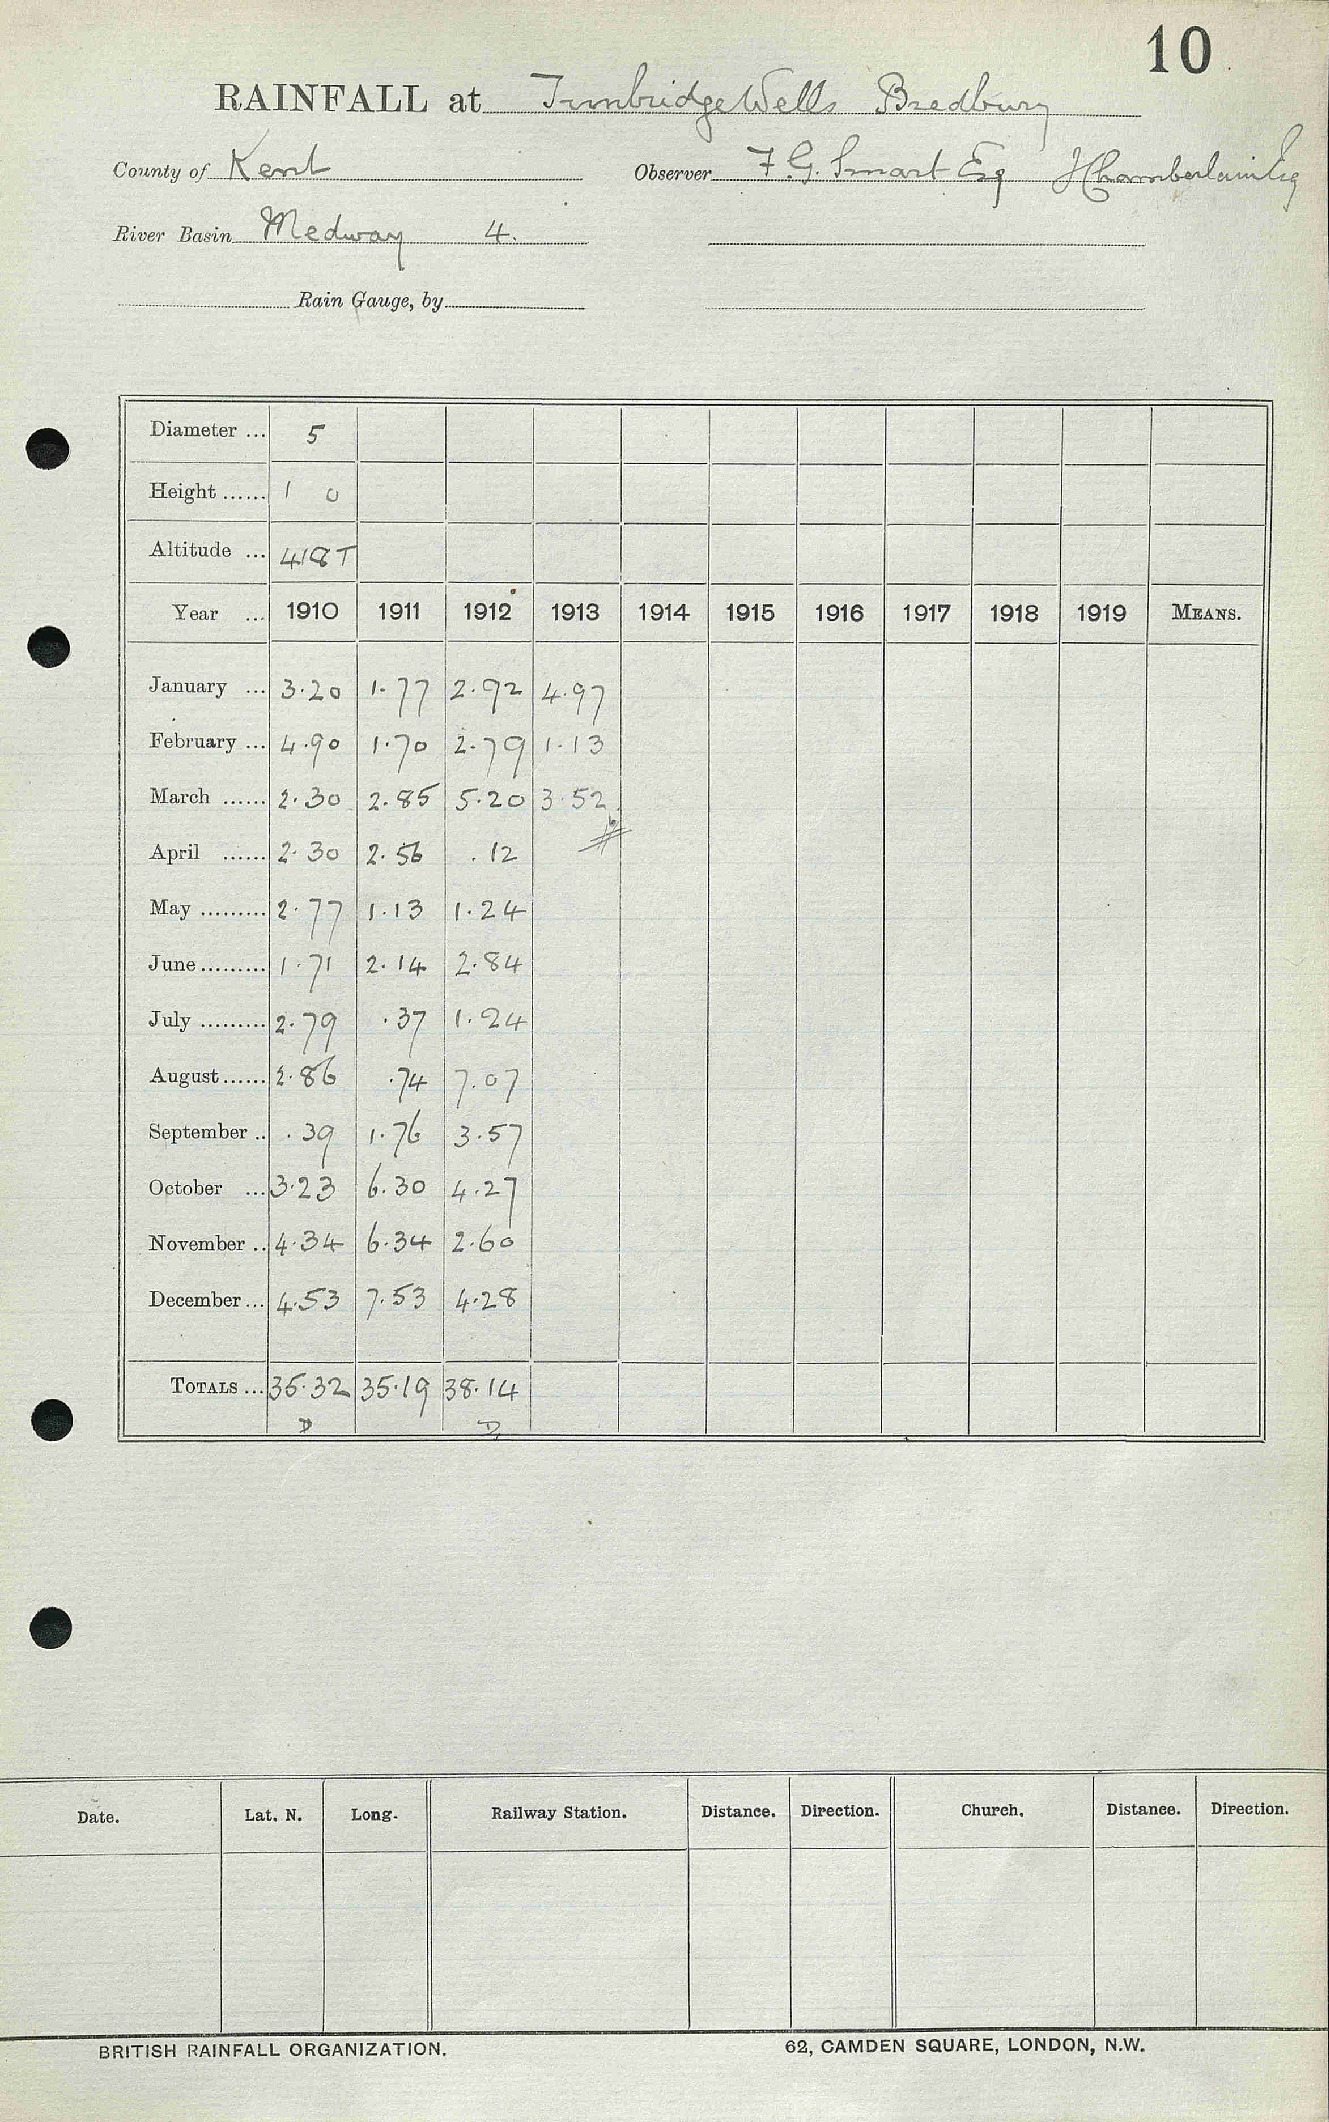 10
RAINFALL at Tunbridge Wells Bredbury
County of Kent Observer F. G. Smart Esq J Chamberlain Esq
River Basin Medway 4.
Rain Gauge, by
Diameter ... 5
Height ...... 1 0
Altitude ... 418 T
Year ... 1910 1911 1912 1913 1914 1915 1916 1917 1918 1919 MEANS.
January ... 3.20 1.77 2.92 4.97
February ... 4.90 1.70 2.79 1.13
March ...... 2.30 2.85 5.20 3.52
April ...... 2.30 2.56 .12
May ......... 2.77 1.13 1.24
June ......... 1.71 2.14 2.84
July ......... 2.79 .37 1.24
August ...... 2.86 .74 7.07
September .. .39 1.76 3.57
October ... 3.23 6.30 4.27
November .. 4.34 6.34 2.60
December ... 4.53 7.53 4.28
TOTALS ... 35.32 35.19 38.14
D D
Date. Lat. N. Long. Railway Station. Distance. Direction. Church. Distance. Direction.
BRITISH RAINFALL ORGANIZATION. 62, CAMDEN SQUARE, LONDON, N.W.